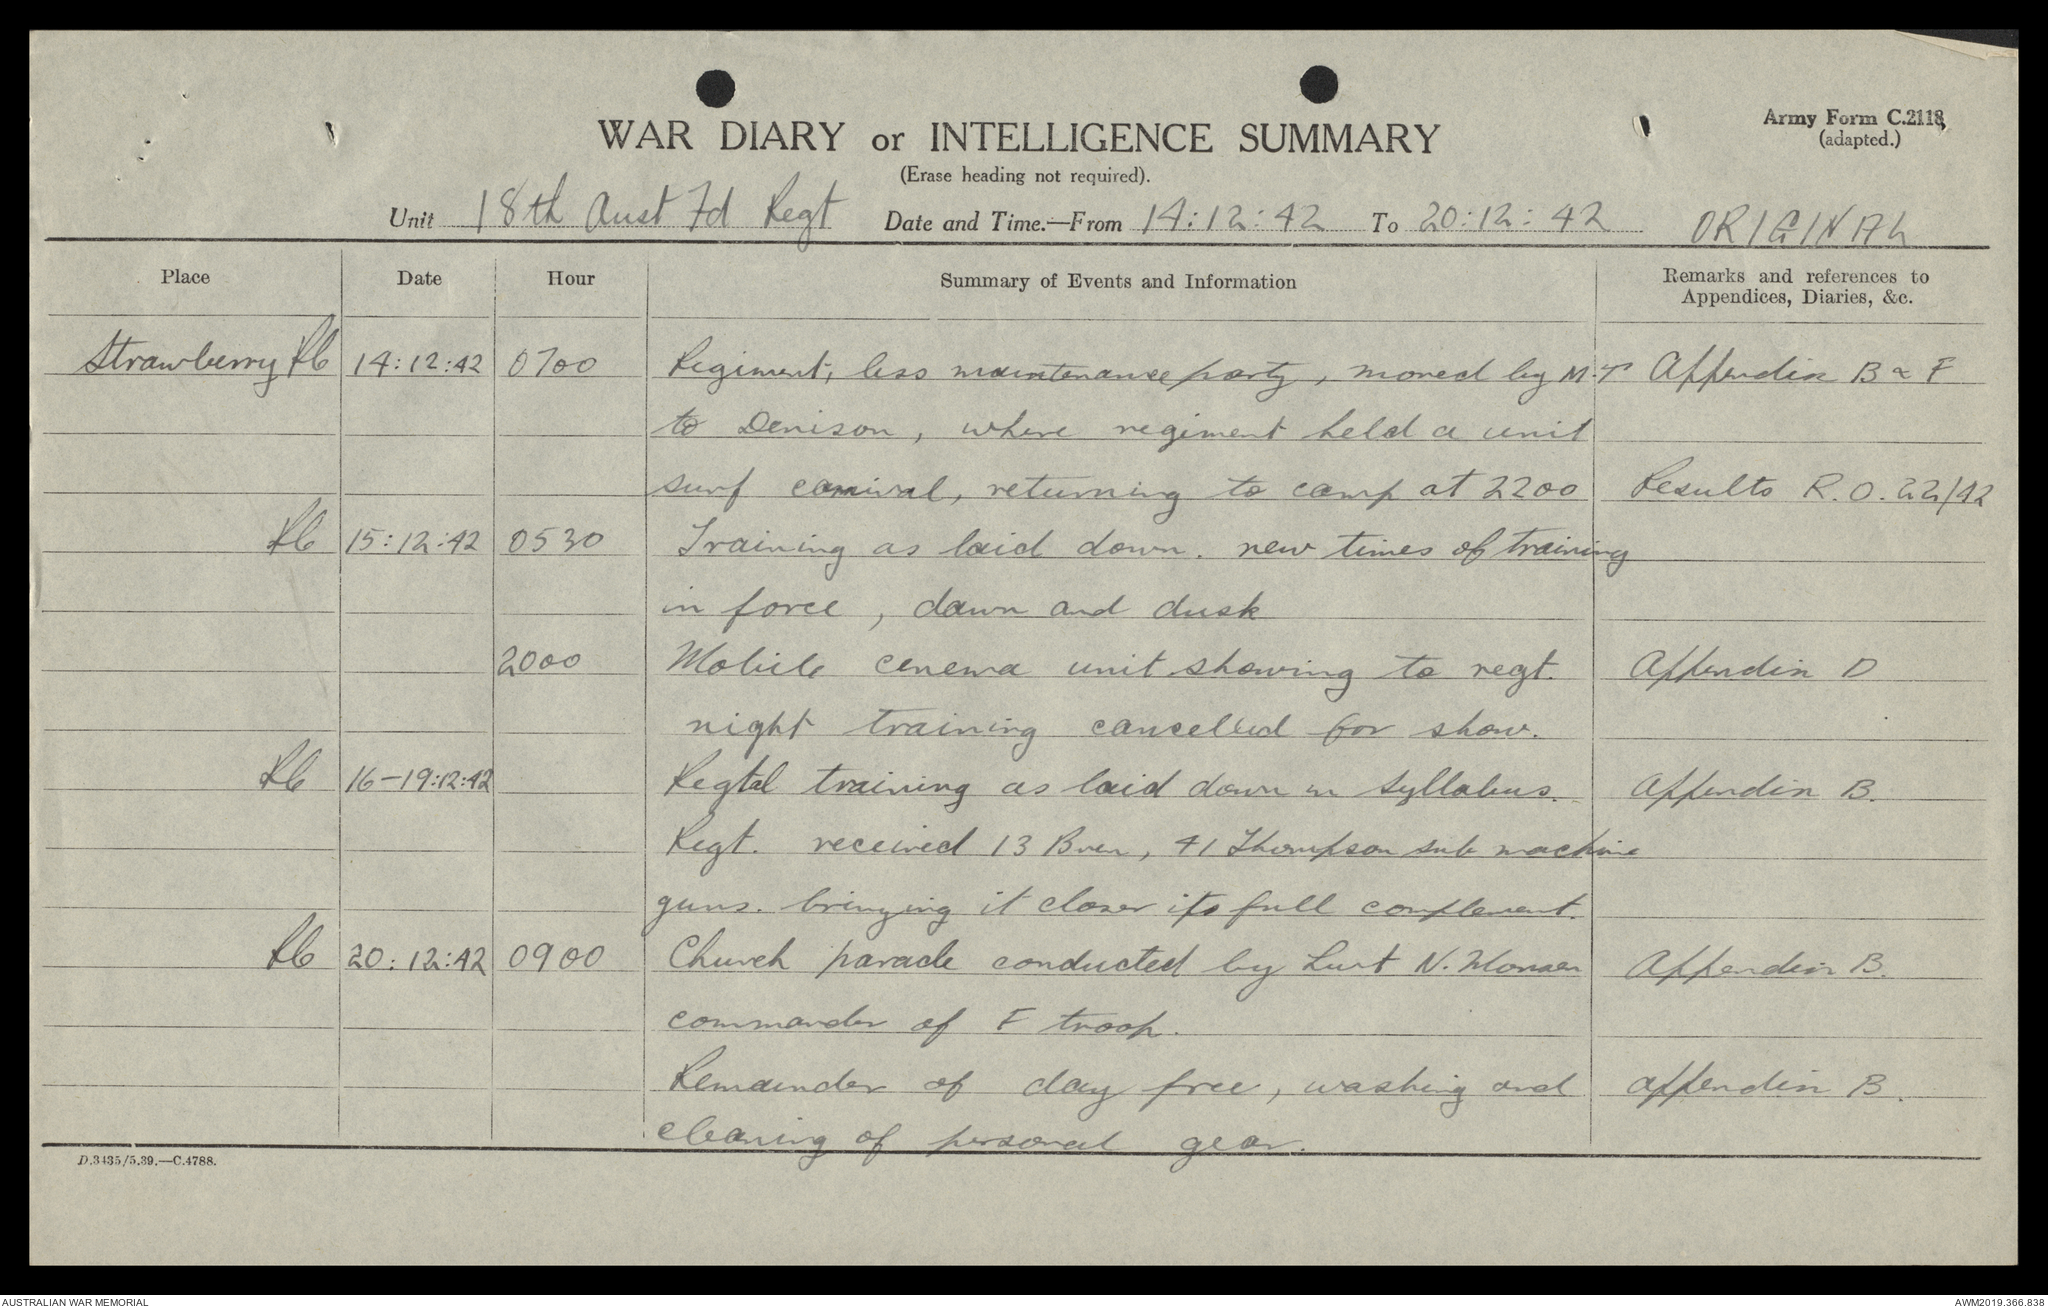 Army Form C.2118
(adapted.)
WAR DIARY or INTELLIGENCE SUMMARY
(Erase heading not required).
Unit 18th Aust Fd Regt Date and Time.—From 14:12:42 To 20:12:42 ORIGINAL
Place Date Hour Summary of Events and Information Remarks and references to
Appendices, Diaries, &c.
Strawberry 14:12:42 0700 Regiment, less maintenance party, moved by M.T Appendix B & F
to Denison, where regiment held a unit
surf carnival, returning to camp at 2200 Results R.O. 22/42
15:12:42 0530 Training as laid down. new times of training
in force, dawn and dusk
2000 Mobile cenema unit showing to regt. Appendix D
night training cancelled for show.
16-19:12:42 Regtal training as laid down in syllabus. Appendix B.
Regt. received 13 Bren, 41 Thompson sub machine
guns. bringing it closer its full complement.
20:12:42 0900 Church parade conducted by Lieut N. Appendix B.
commander of F troop.
Remainder of day free, washing and appendix B.
cleaning of personal gear.
D.3435/5.39.—C.4788.
AUSTRALIAN WAR MEMORIAL AWM2019.366.838